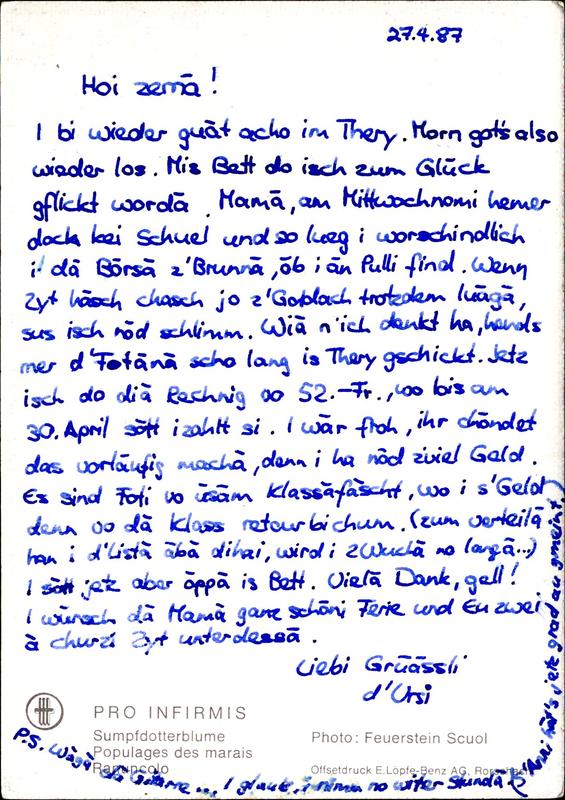 27.4.87
Hoi zemä!
I bi wieder guät acho im Thery. Morn got's also
wieder los. Mis Bett do isch zum Glück
gflickt wordä. Mamä, am Mittwochnomi hemer
dock kei Schuel und so lueg i worschindlich
i dä Börsä z'Brunnä, öb i än Pulli find. Wenn
Zyt häsch chasch jo z'Goldach trotzdem luägä,
sus isch nöd schlimm. Wiä n'ich denkt ha, hends
mer d'Fotänä scho lang is Thery gschickt. Jetz
isch do diä Rechnig vo 52.-Fr., wo bis am
30. April sött izahlt si. I wär froh, ihr chöndet
das vorläufig machä, denn i ha nöd zviel Geld.
Es sind Foti vo üsäm Klassäfäscht, wo i s'Geld
denn vo dä Klass retour bichum. (zum verteilä
han i d'Listä äbä dihai, wird i zWuchä no langä..)
I sött jetz aber öppä is Bett. Vielä Dank, gell!
I wünsch dä Mamä ganz schöni Ferie und Eu zwei
ä churzi Zyt unterdessä.
Liebi Grüässli
d'Ursi
PRO INFIRMIS
Sumpfdotterblume
Populages des marais
Rapuncolo
Photo: Feuerstein Scuol
Offsetdruck E. Löpfe-Benz AG, Rorschach
P.S. Wägä dä Gitarre ... I glaub, i nimm no witer Stundä
Anni hät's jetz grad au gmeint.